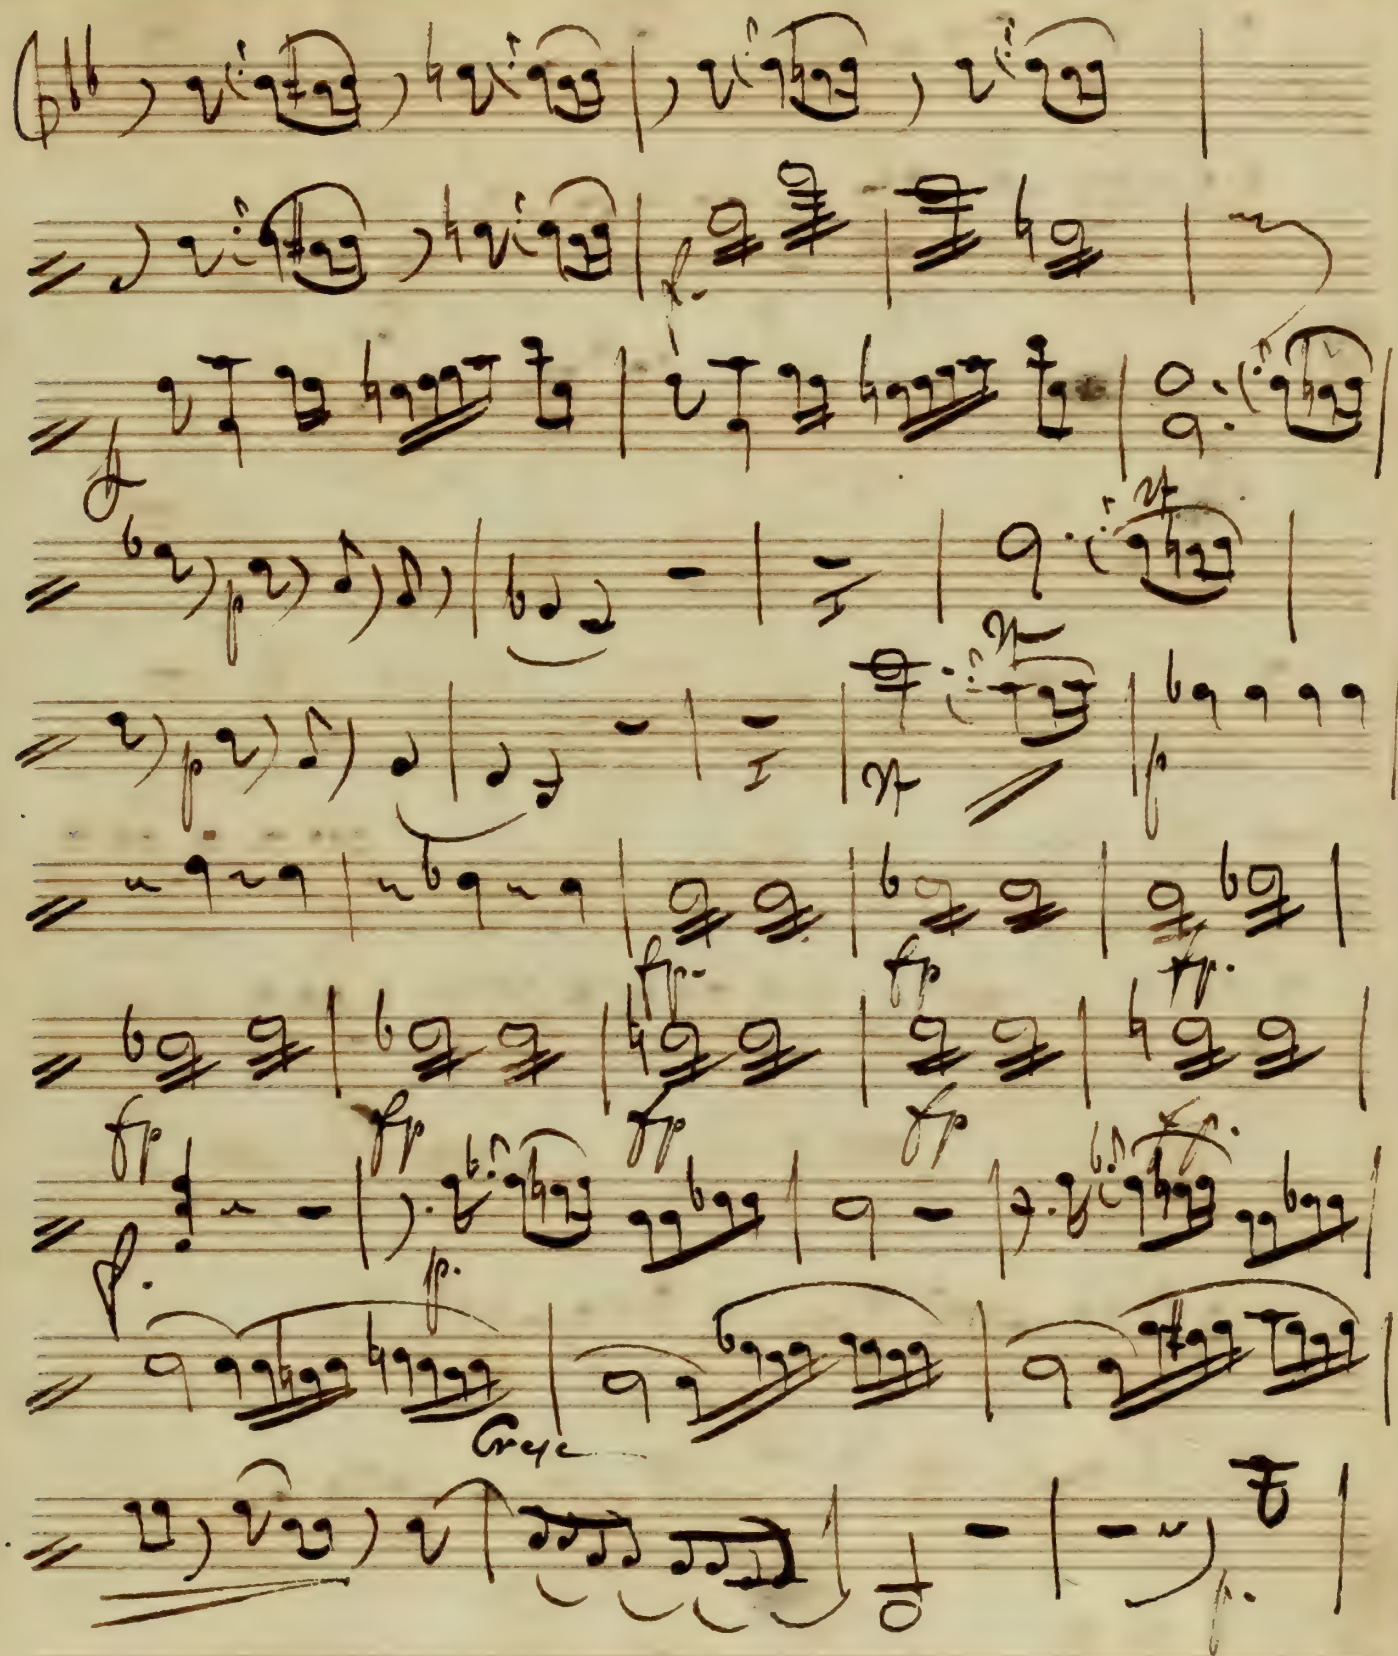 f.
f
p
p p
fp. fp fp.
fp fp fp fp fp.
f. p.
Cresc
p.